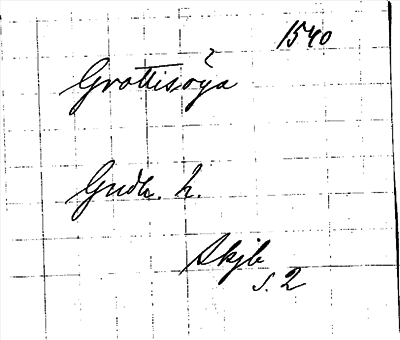 1540
Grottisøya
Gudb. h.
Skjb
s. 2